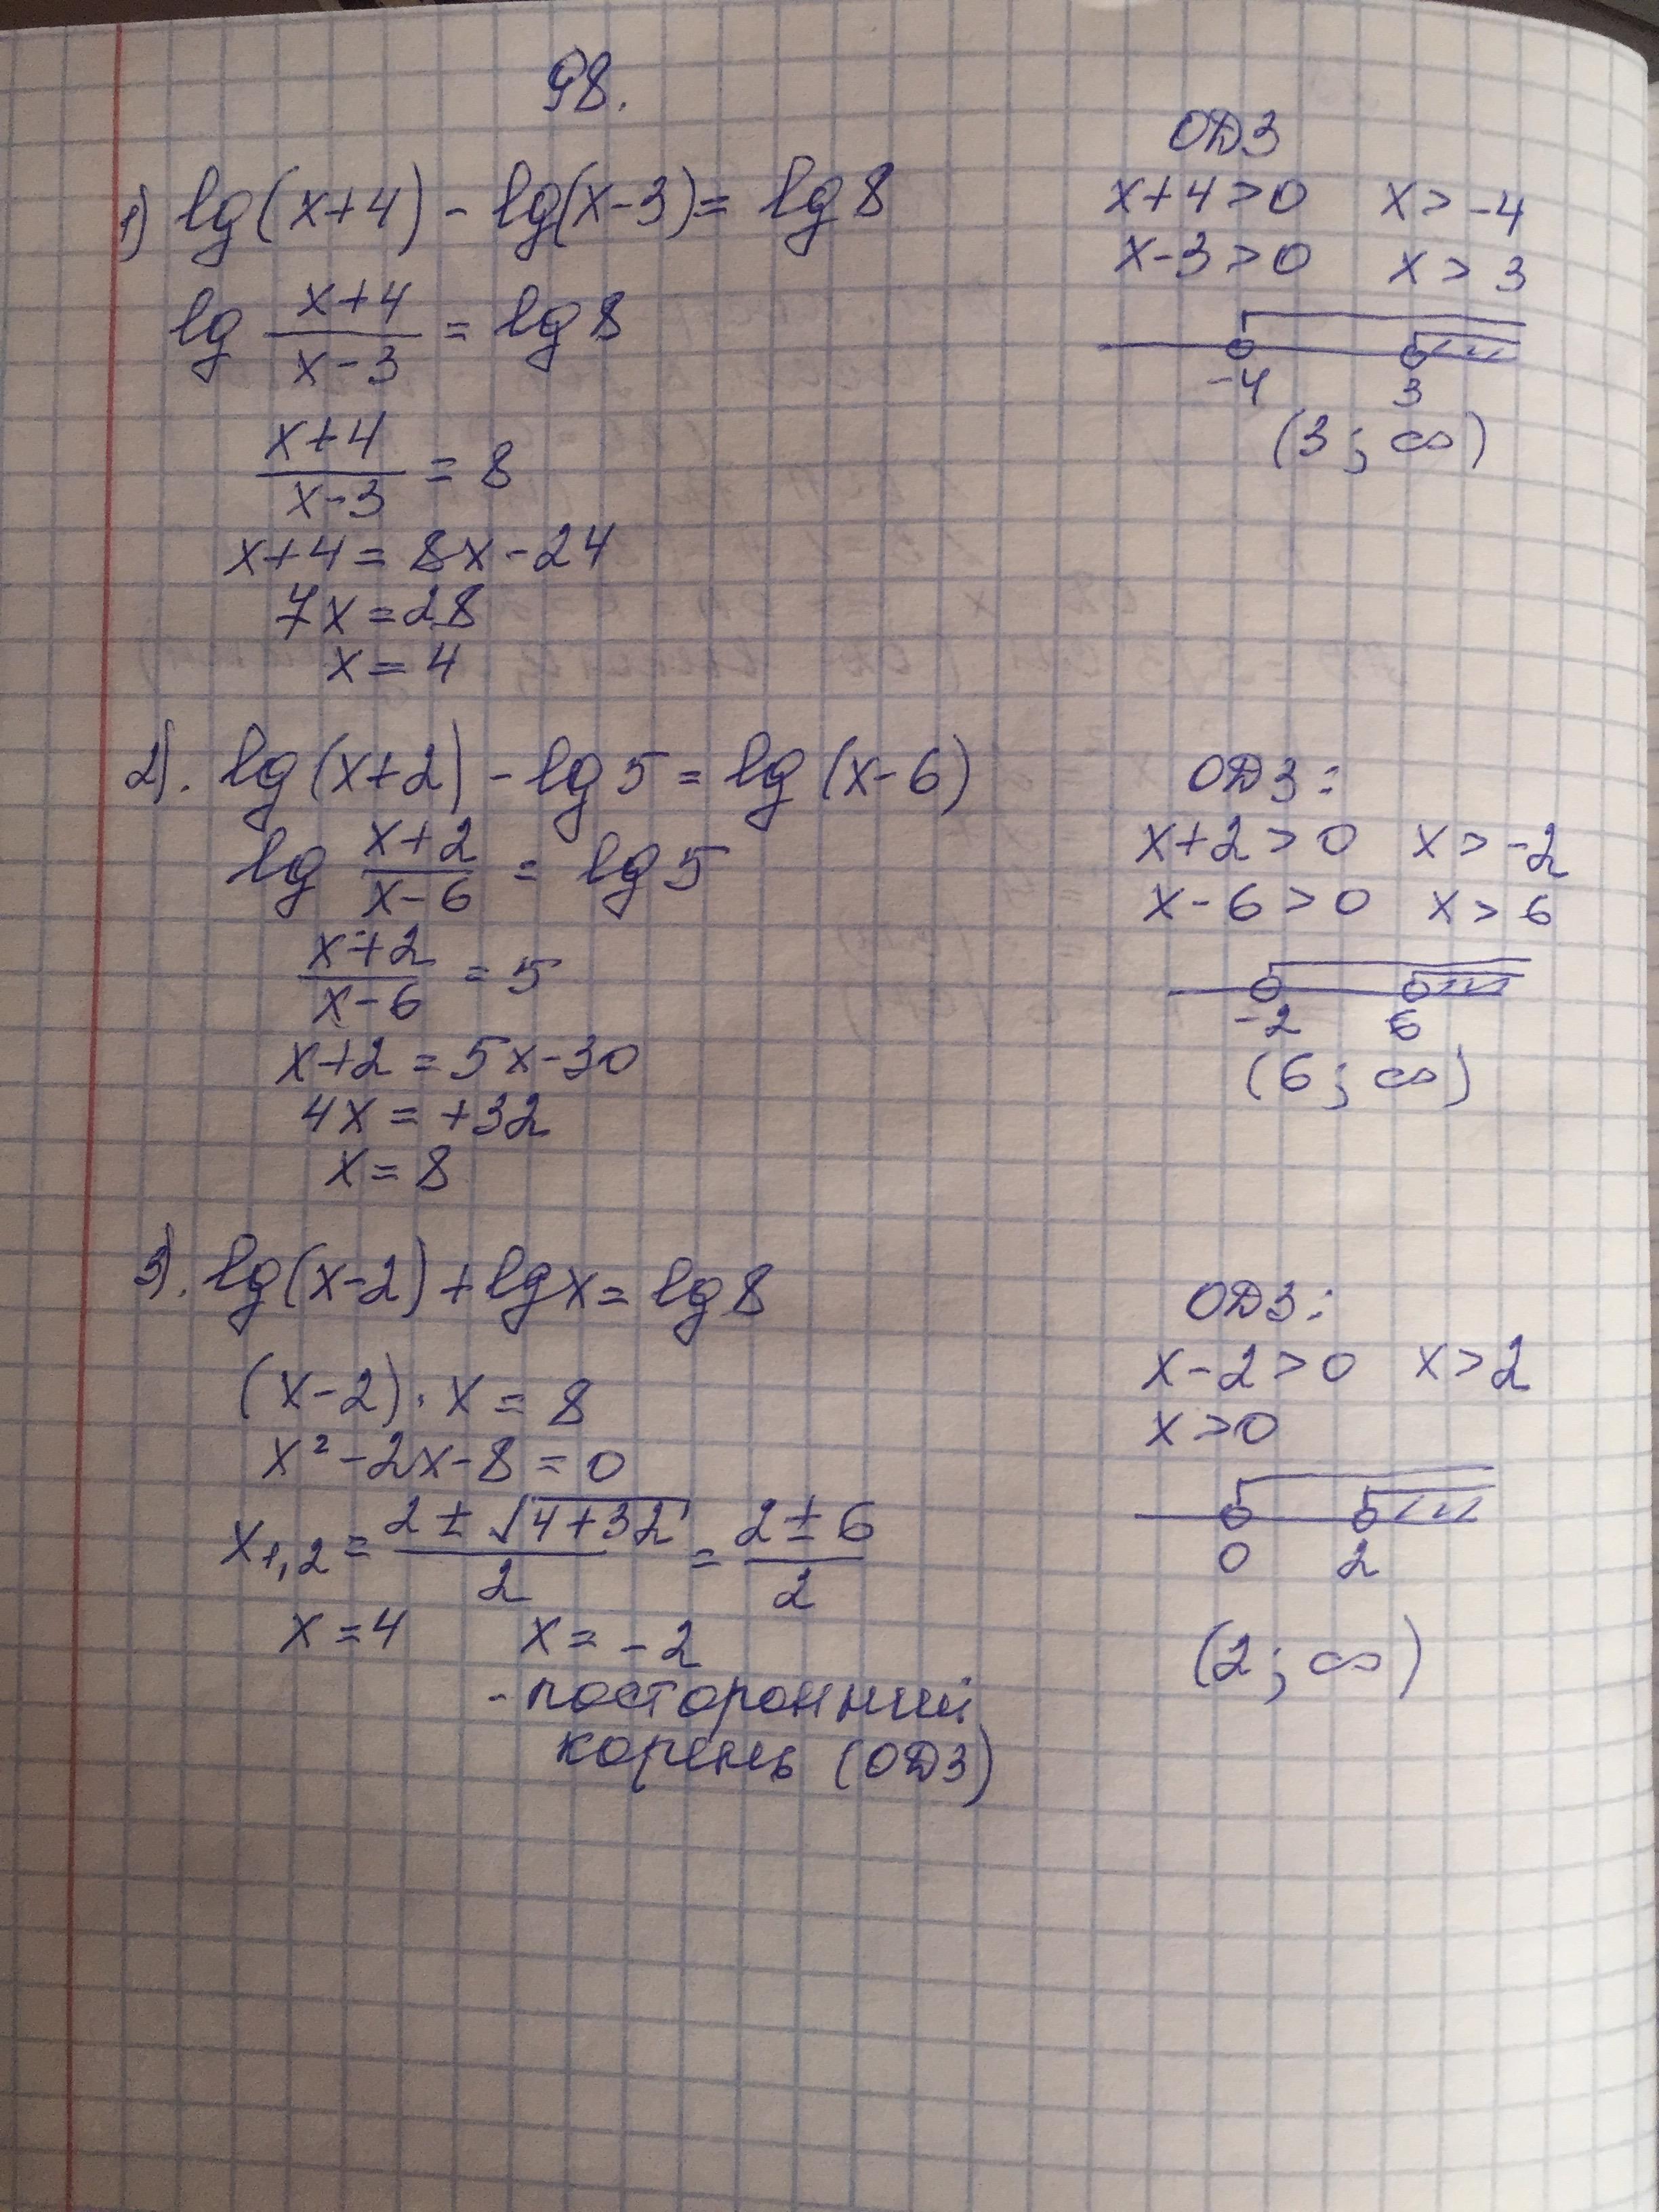 98.
1) lg(x+4) - lg(x-3) = lg 8
lg (x+4)/(x-3) = lg 8
(x+4)/(x-3) = 8
x+4 = 8x-24
7x = 28
x = 4
ОДЗ
x+4>0 x>-4
x-3>0 x>3
-4 3
(3; ∞)
2). lg(x+2) - lg 5 = lg (x-6)
lg (x+2)/(x-6) = lg 5
(x+2)/(x-6) = 5
x+2 = 5x-30
4x = +32
x = 8
ОДЗ:
x+2>0 x>-2
x-6>0 x>6
-2 6
(6; ∞)
3). lg(x-2) + lg x = lg 8
(x-2)·x = 8
x²-2x-8 = 0
x₁,₂ = (2 ± √(4+32))/2 = (2±6)/2
x = 4 x = -2
- посторонний
корень (ОДЗ)
ОДЗ:
x-2>0 x>2
x>0
0 2
(2; ∞)